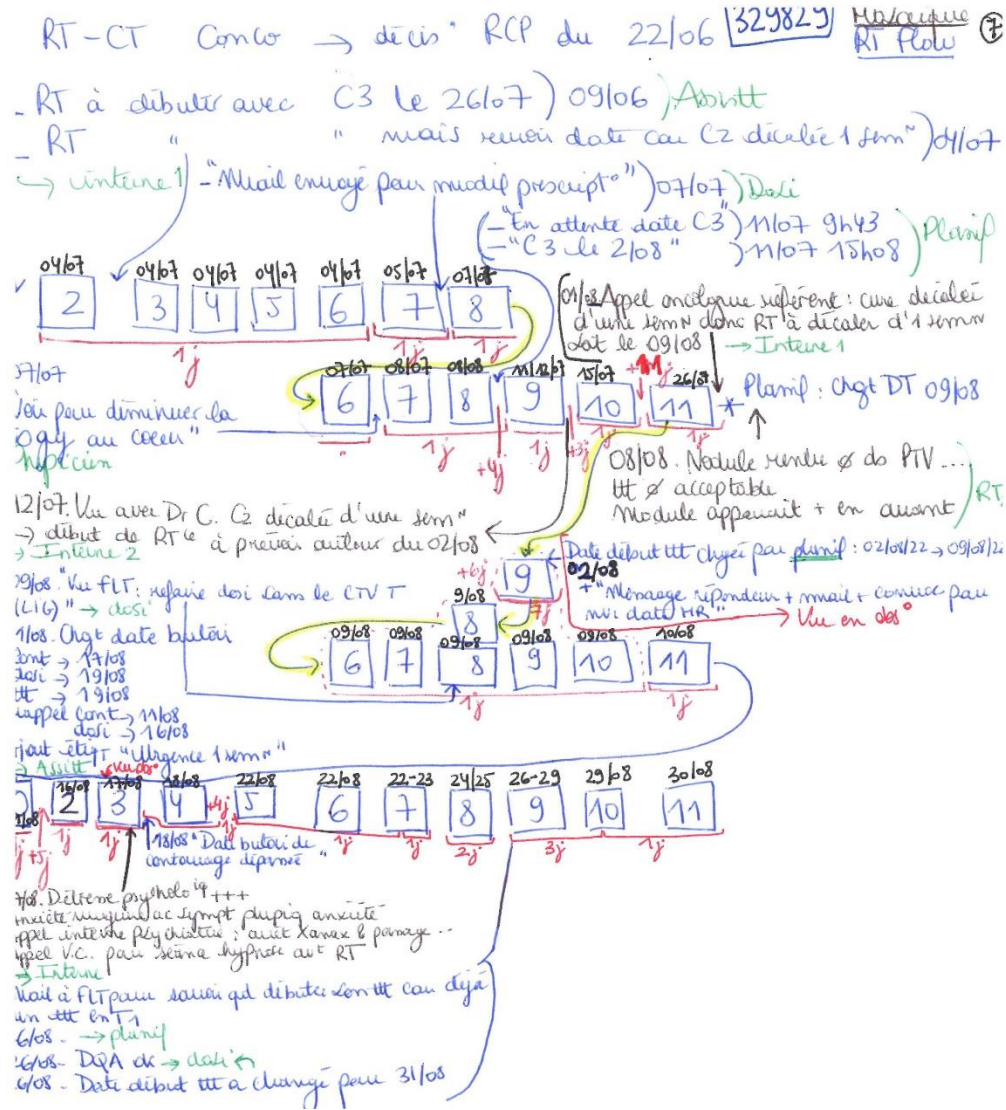 RT-CT Conco → décis° RCP du 22/06 329829 Mosaïque ⑦
RT Plolu
- RT à débuter avec C3 le 26/07) 09/06) Assitt
- RT " " mais revoir date car C2 décalée 1 semⁿ) 04/07
→ interne 1 - "Mail envoyé pour modif prescript°") 07/07) Dosi
- "En attente date C3") 11/07 9h43
- "C3 le 2/08") 11/07 15h08) Planif
04/07 04/07 04/07 04/07 04/07 05/07 07/08
2 3 4 5 6 7 8
1j 1j 1j
01/08 Appel oncologue référent : cure décalée
d'une semⁿ donc RT à décaler d'1 semⁿ
soit le 09/08 → Interne 1
07/07 08/07 08/08 11/12/07 15/07 +1M 26/07
6 7 8 9 10 11 * Planif : Chgt DT 09/08
1j +4j 1j +3j 1j 1j
pour diminuer la
au coeur"
08/08. Nodule rendu ø ds PTV...
ttt ø acceptable
Module apparait + en avant) RT
12/07. Vu avec Dr C. C2 décalée d'une semⁿ
→ début de RT à prévoir autour du 02/08
→ Interne 2
Date début ttt chgée par planif : 02/08/22 → 09/08/22
+ "Message répondeur + mail + convoc par
→ Vu en obs°
+6j 9 02/08
7j
9/08
8
09/08. "Vu FLT : refaire dosi sans le CTV T
(LIG)" → dosi
1/08. Chgt date butoir
cont → 17/08
dosi → 19/08
ttt → 19/08
rappel cont → 11/08
dosi → 16/08
ajout étiqt "Urgence 1 semⁿ"
→ Assitt
09/08 09/08 09/08 09/08 09/08 10/08
6 7 8 9 10 11
1j 1j
16/08 17/08 18/08 22/08 22/08 22-23 24/25 26-29 29/08 30/08
2 3 4 5 6 7 8 9 10 11
+5j 1j 1j +4j 1j 1j 1j 2j 3j 1j
18/08 "Date butoir de
contourage dépassée"
Détresse psycholoiq +++
anxiété ac sympt anxiété
appel interne Psychiatrie :
appel V.C. pour hypnose avt RT
→ Interne
Mail à FLT pour savoir qd débuter son ttt car déjà
un ttt en T1
6/08. → planif
26/08- DQA ok → dosi
6/08 - Date début ttt a changé pour 31/08